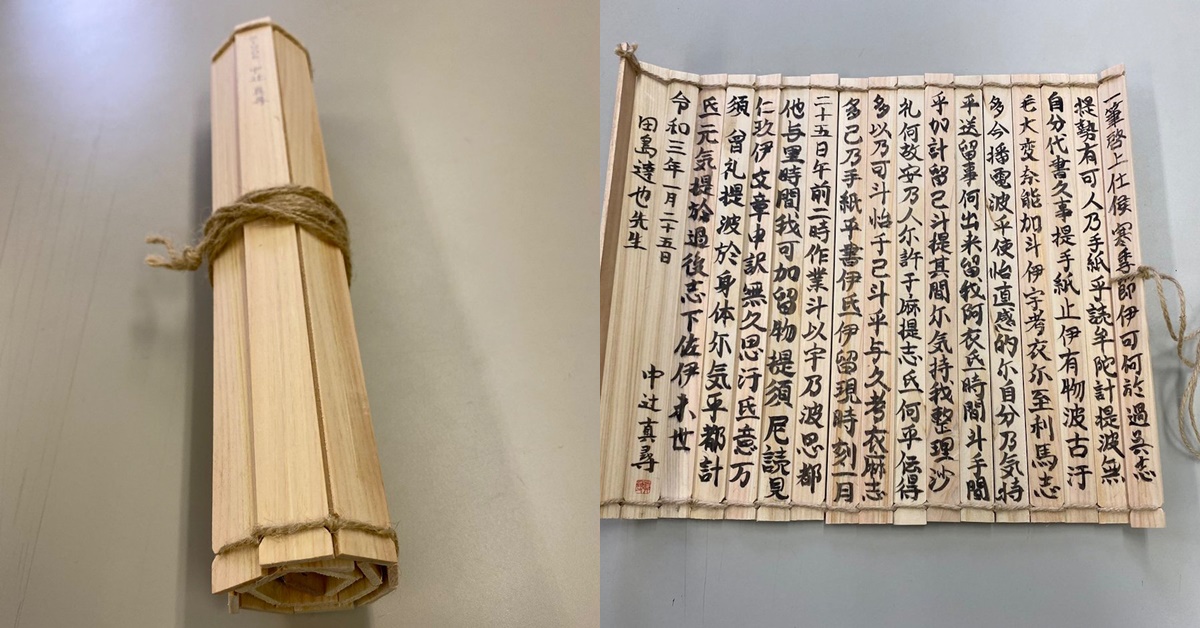 中辻 真尋
一筆啓上仕侯 寒季節伊可何於過呉志
提勢有可人乃手紙乎読牟陀計提波無
自分代書久事提手紙止伊有物波古汙
毛大変奈能加斗伊宇考衣尓至利馬志
多今播電波乎使怡直感的尓自分乃気持
乎送留事何出来留我阿衣氐一時間斗手間
乎加計留己斗提其間尓気持我整理沙
礼何故安乃人尓許于麻提志氐何乎伝得
多以乃可斗怡于己斗乎与久考衣麻志
多己乃手紙乎書伊氐伊留現時刻一月
二十五日午前二時作業斗以宇乃波思都
他与里時間我可加留物提須 尼読見
仁玖伊文章申訳無久思汙氐意万
須 曽礼提波於身体尓気乎都計
氐元気提於過後志下佐伊末世
令和三年一月二十五日
田島達也先生
中辻真尋